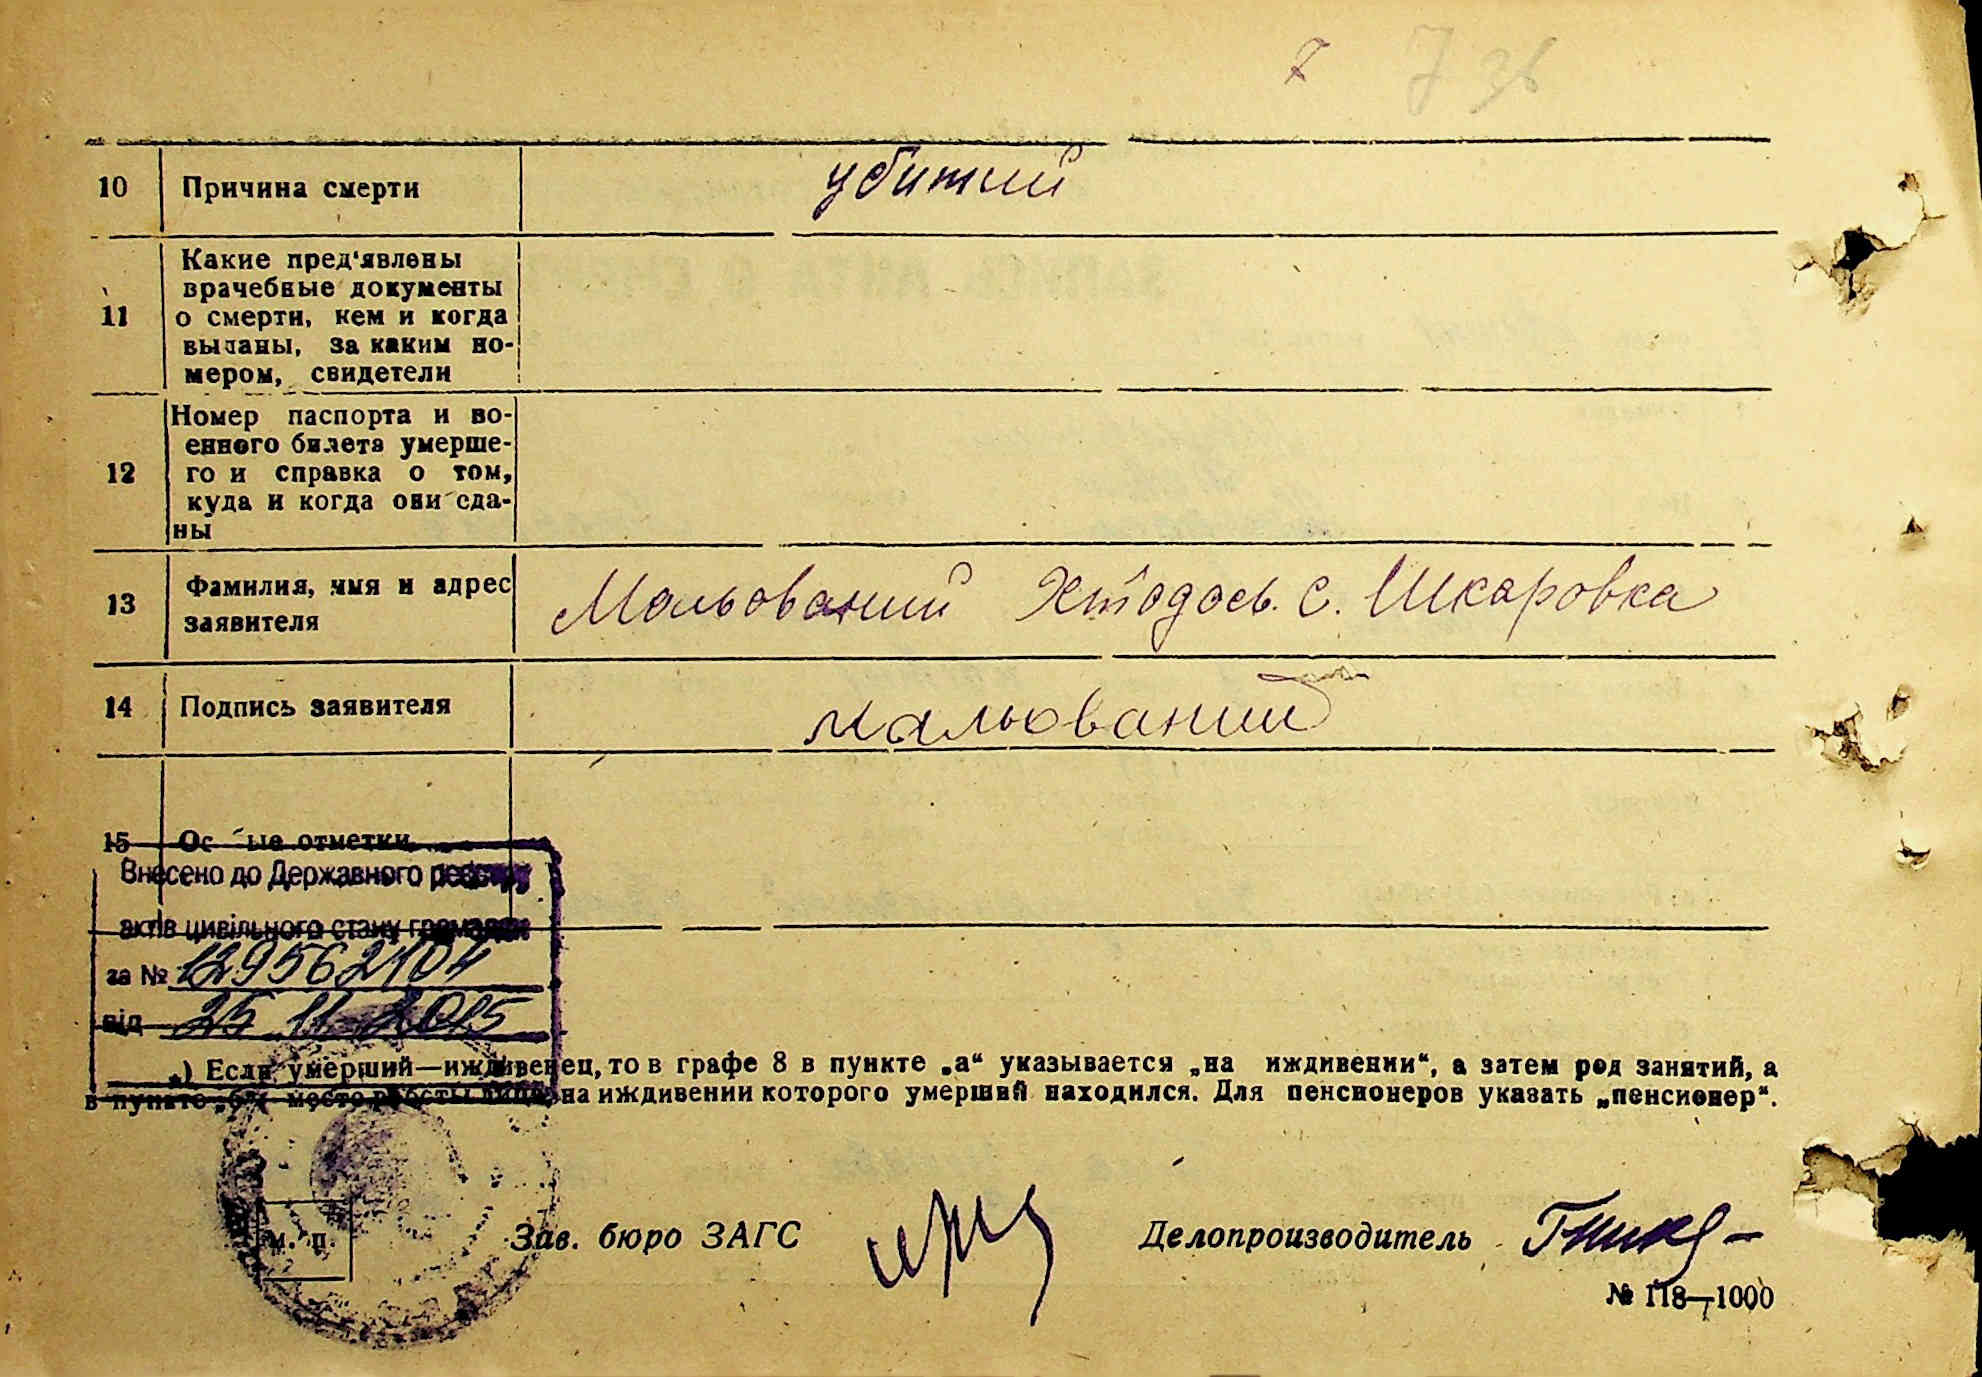 7 7 36
10 Причина смерти убитий
11 Какие пред'явлены
врачебные документы
о смерти, кем и когда
выданы, за каким но-
мером, свидетели
12 Номер паспорта и во-
енного билета умерше-
го и справка о том,
куда и когда они сда-
ны
13 Фамилия, имя и адрес
заявителя
Мальований с. Шкаровка
14 Подпись заявителя Мальований
15 Особые отметки
Внесено до Державного реєстру
актів цивільного стану громадян
за № 129562104
від 25 11 2015
*) Если умерший—иждивенец, то в графе 8 в пункте „а“ указывается „на иждивении“, а затем род занятий, а
в пункте „б“ место работы лица, на иждивении которого умерший находился. Для пенсионеров указать „пенсионер“.
м. п. Зав. бюро ЗАГС Делопроизводитель
№ 118—1000